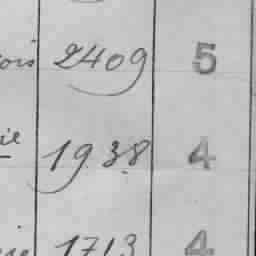 ois 2409 5
ie 1938 4
1713 4